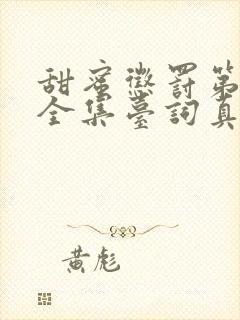 甜蜜懲罰第
全集臺詞真
黃彪